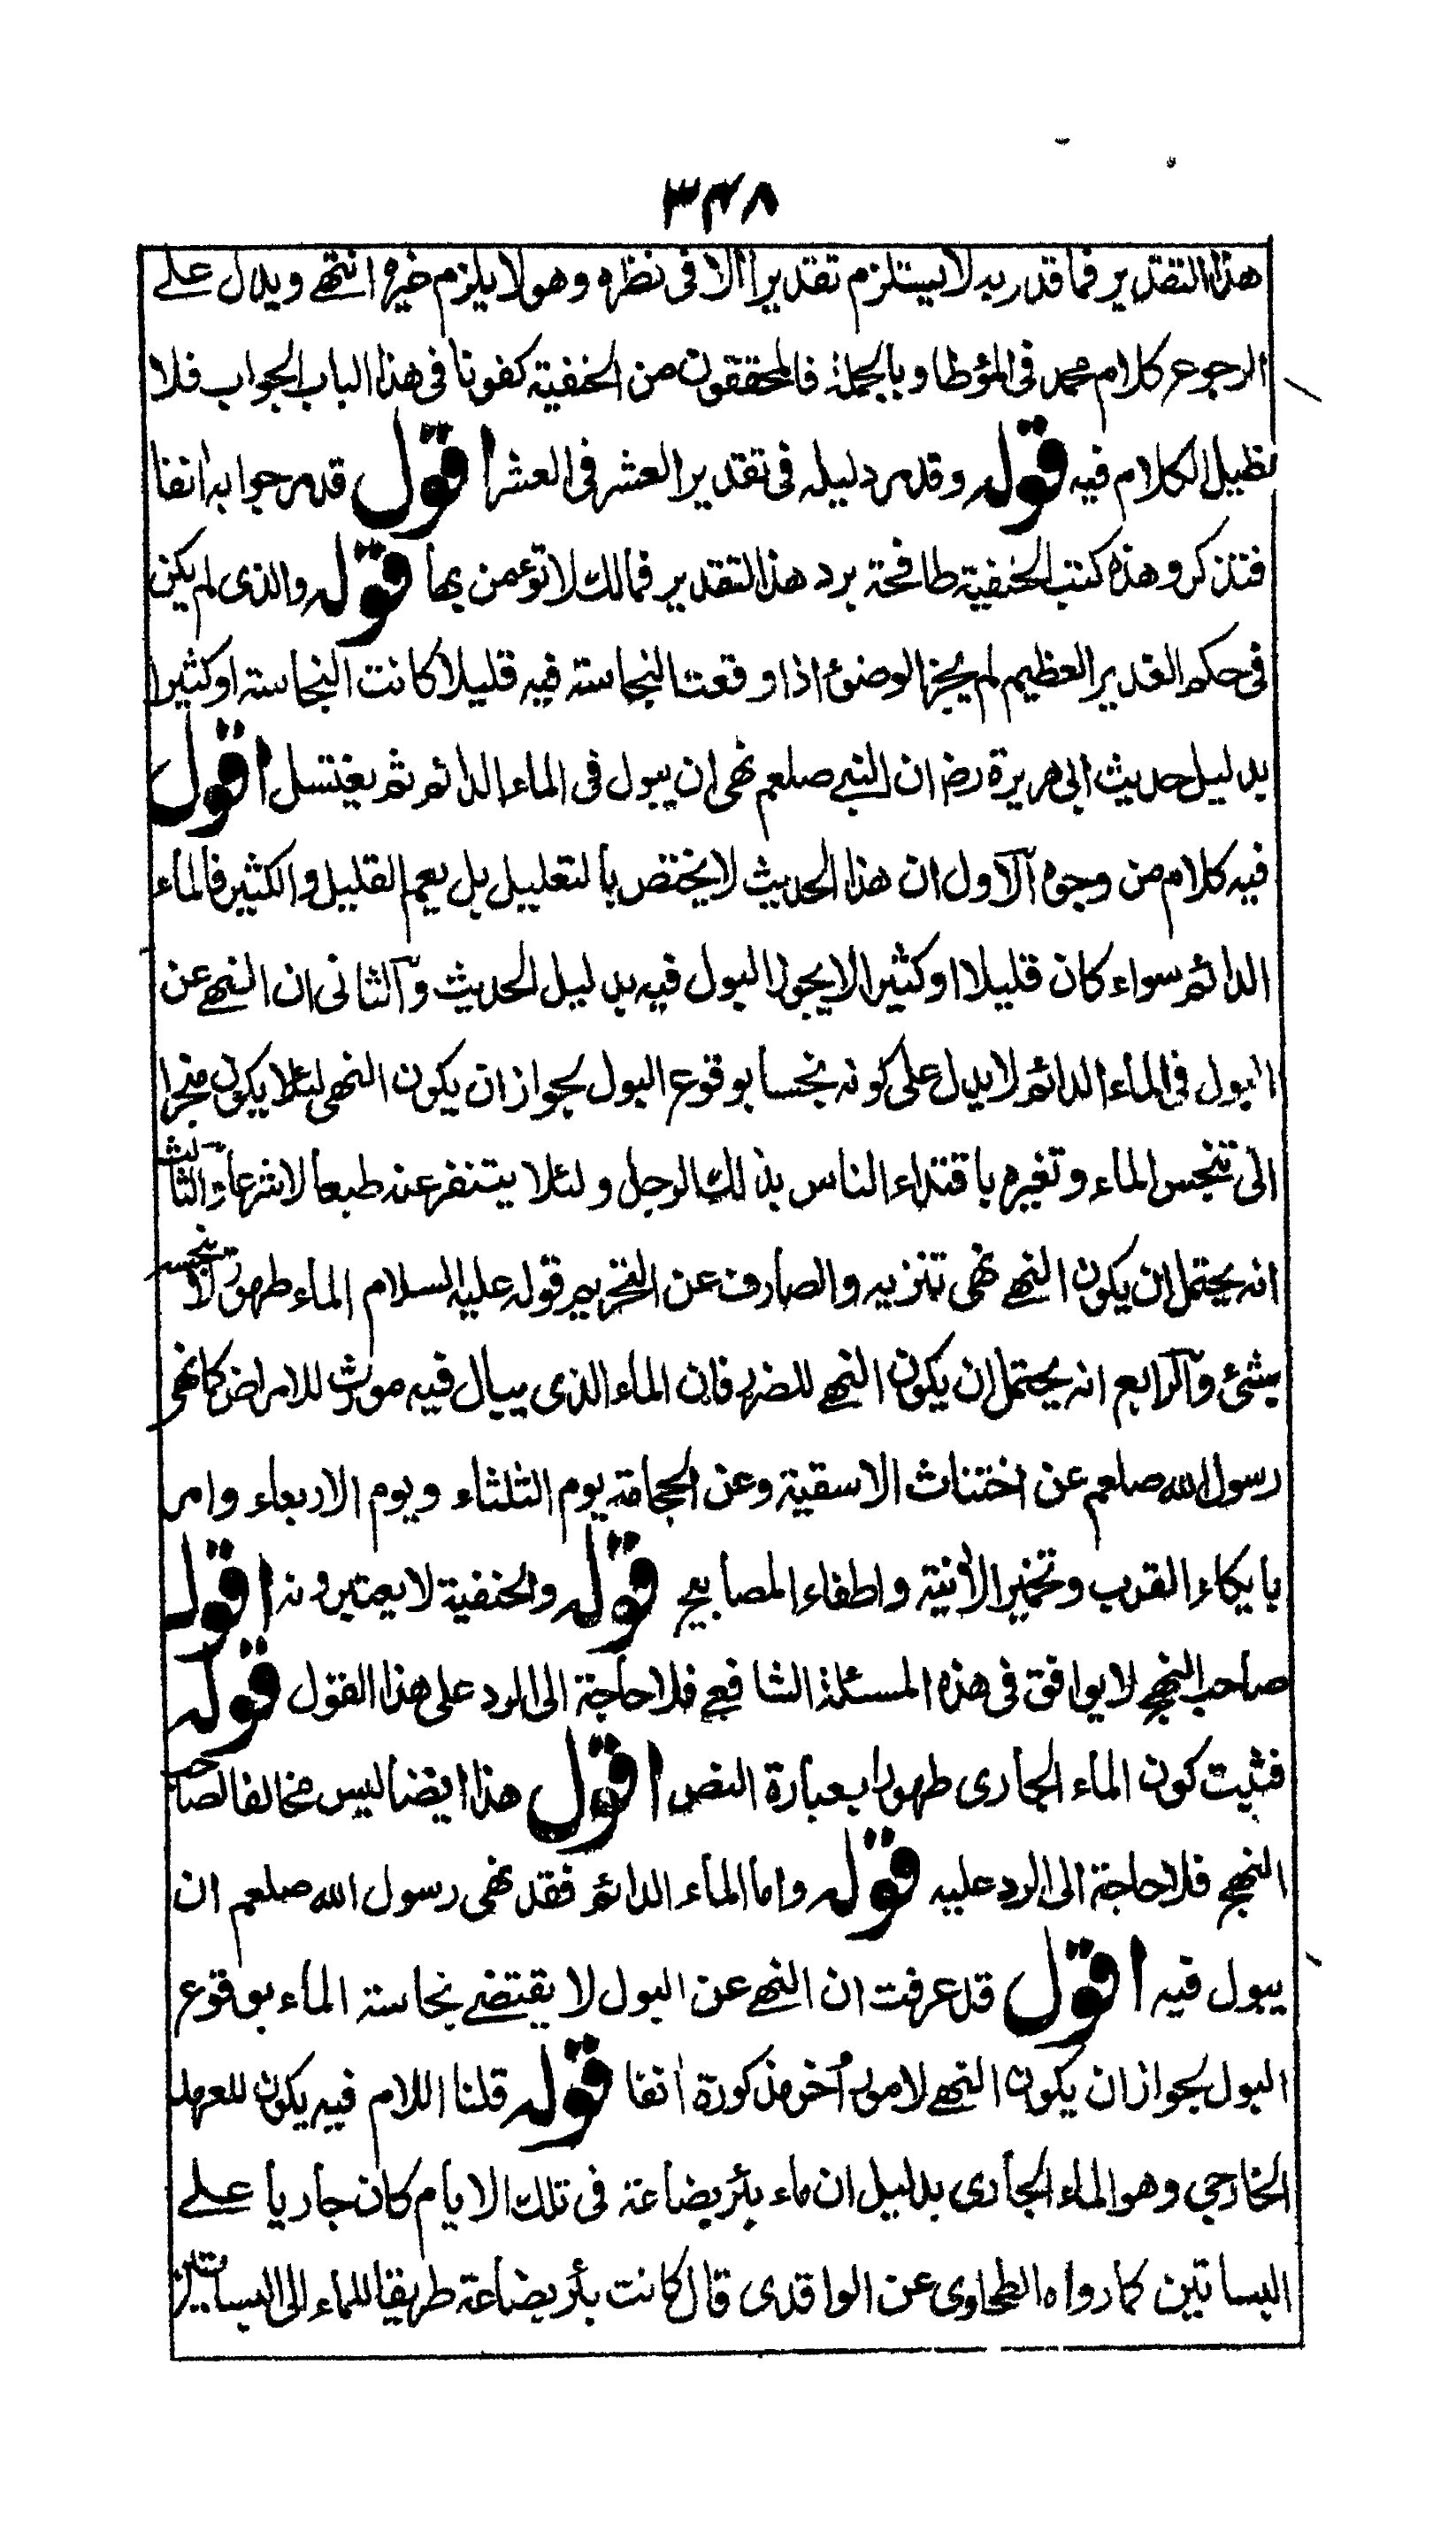 ٣٤٨
هذا التقدير فما قدر به لا يستلزم تقديرا الا فى نظره وهو لا يلزم غيره انتهے ويدل علے
الرجوع كلام محمد فى المؤطا وبالجملة فالمحققون من الحنفية كفونا فى هذا الباب الجواب فلا
نطيل الكلام فيه قوله وقد مر دليله فى تقدير العشر فى العشر اقول قد مر جوابه انفا
فتذكر وهذه كتب الحنفية طافحة برد هذا التقدير فمالك لا تؤمن بها قوله والذى لم يكن
فى حكم الغدير العظيم لم يجز الوضوء اذا وقعت النجاسة فيه قليلا كانت النجاسة او كثيرا
بدليل حديث ابى هريرة رض ان النبے صلعم نهى ان يبول فى الماء الدائم ثم يغتسل اقول
فيه كلام من وجوه آلاول ان هذا الحديث لا يختص بالتعليل بل يعم القليل والكثير فالماء
الدائم سواء كان قليلا او كثيرا لا يجوز البول فيه بدليل الحديث وآلثانى ان النهے عن
البول فى الماء الدائم لا يدل على كونه نجسا بوقوع البول لجواز ان يكون النهى لئلا يكون منجرا
الى تنجس الماء وتغيره باقتداء الناس بذلك الرجل ولئلا يتنفر عنه طبعا لا شرعا وآلثالث
انه يحتمل ان يكون النهے نهى تنزيه والصارف عن التحريم قوله عليه السلام الماء طهور لا ينجسه
شئ وآلرابع انه يحتمل ان يكون النهے للضرر فان الماء الذى يبال فيه مورث للامراض كما نهى
رسول الله صلعم عن اختناث الاسقية وعن الحجامة يوم الثلثاء ويوم الاربعاء وامر
بايكاء القرب وتخمير الأنية واطفاء المصابيح قوله والحنفية لا يعتبرونه اقول
صاحب النهج لا يوافق فى هذه المسئلة الشافعے فلا حاجة الى الرد على هذا القول قوله
فثبت كون الماء الجارى طهورا بعبارة النص اقول هذا ايضا ليس مخالفا لصاحب
النهج فلا حاجة الى الرد عليه قوله واما الماء الدائم فقد نهى رسول الله صلعم ان
يبول فيه اقول قد عرفت ان النهے عن البول لا يقتضے نجاسة الماء بوقوع
البول لجواز ان يكون النهے لامور أخر مذكورة انفا قوله قلنا اللام فيه يكون للعهد
الخارجى وهو الماء الجارى بدليل ان ماء بئر بضاعة فى تلك الايام كان جاريا علے
البساتين كما رواه الطحاوى عن الواقدى قال كانت بئر بضاعة طريقا للماء الى البساتين